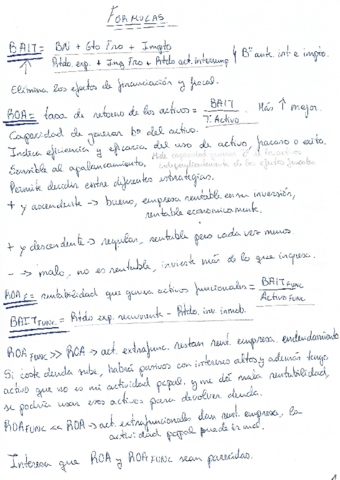 FORMULAS
BAIT = BN + Gto Fro + Impto
Rtdo. exp. + Ing Fro + Rtdo act. interrump } Bº ante int e impto.
Elimina los efectos de financiación y fiscal.
ROA = tasa de retorno de los activos = BAIT / T. Activo. Más ↑ mejor.
Capacidad de generar bº del activo.
Indica eficiencia y eficacia del uso de activo, fracaso o éxito.
Sensible al apalancamiento.
Permite decidir entre diferentes estrategias.
+ y ascendente → bueno, empresa rentable en su inversión,
rentable económicamente.
+ y descendente → regular, rentable pero cada vez menos.
- → malo, no es rentable, invierte más de lo que ingresa.
ROA F = rentabilidad que genera activos funcionales = BAIT FUNC / Activo FUNC
BAIT FUNC = Rtdo exp. recurrente - Rtdo. inv inmob.
ROA FUNC >> ROA → act. extrafunc. restan rent. empresa, endeudamiento
Si coste deuda sube, habrá pasivos con intereses altos y además tengo
activo que no es mi actividad ppal, y me dá mala rentabilidad,
se podría usar esos activos para devolver deuda.
ROA FUNC << ROA → act. extrafuncionales dan rent. empresa, la
actividad ppal puede ir mal.
Interesa que ROA y ROA FUNC sean parecidas.